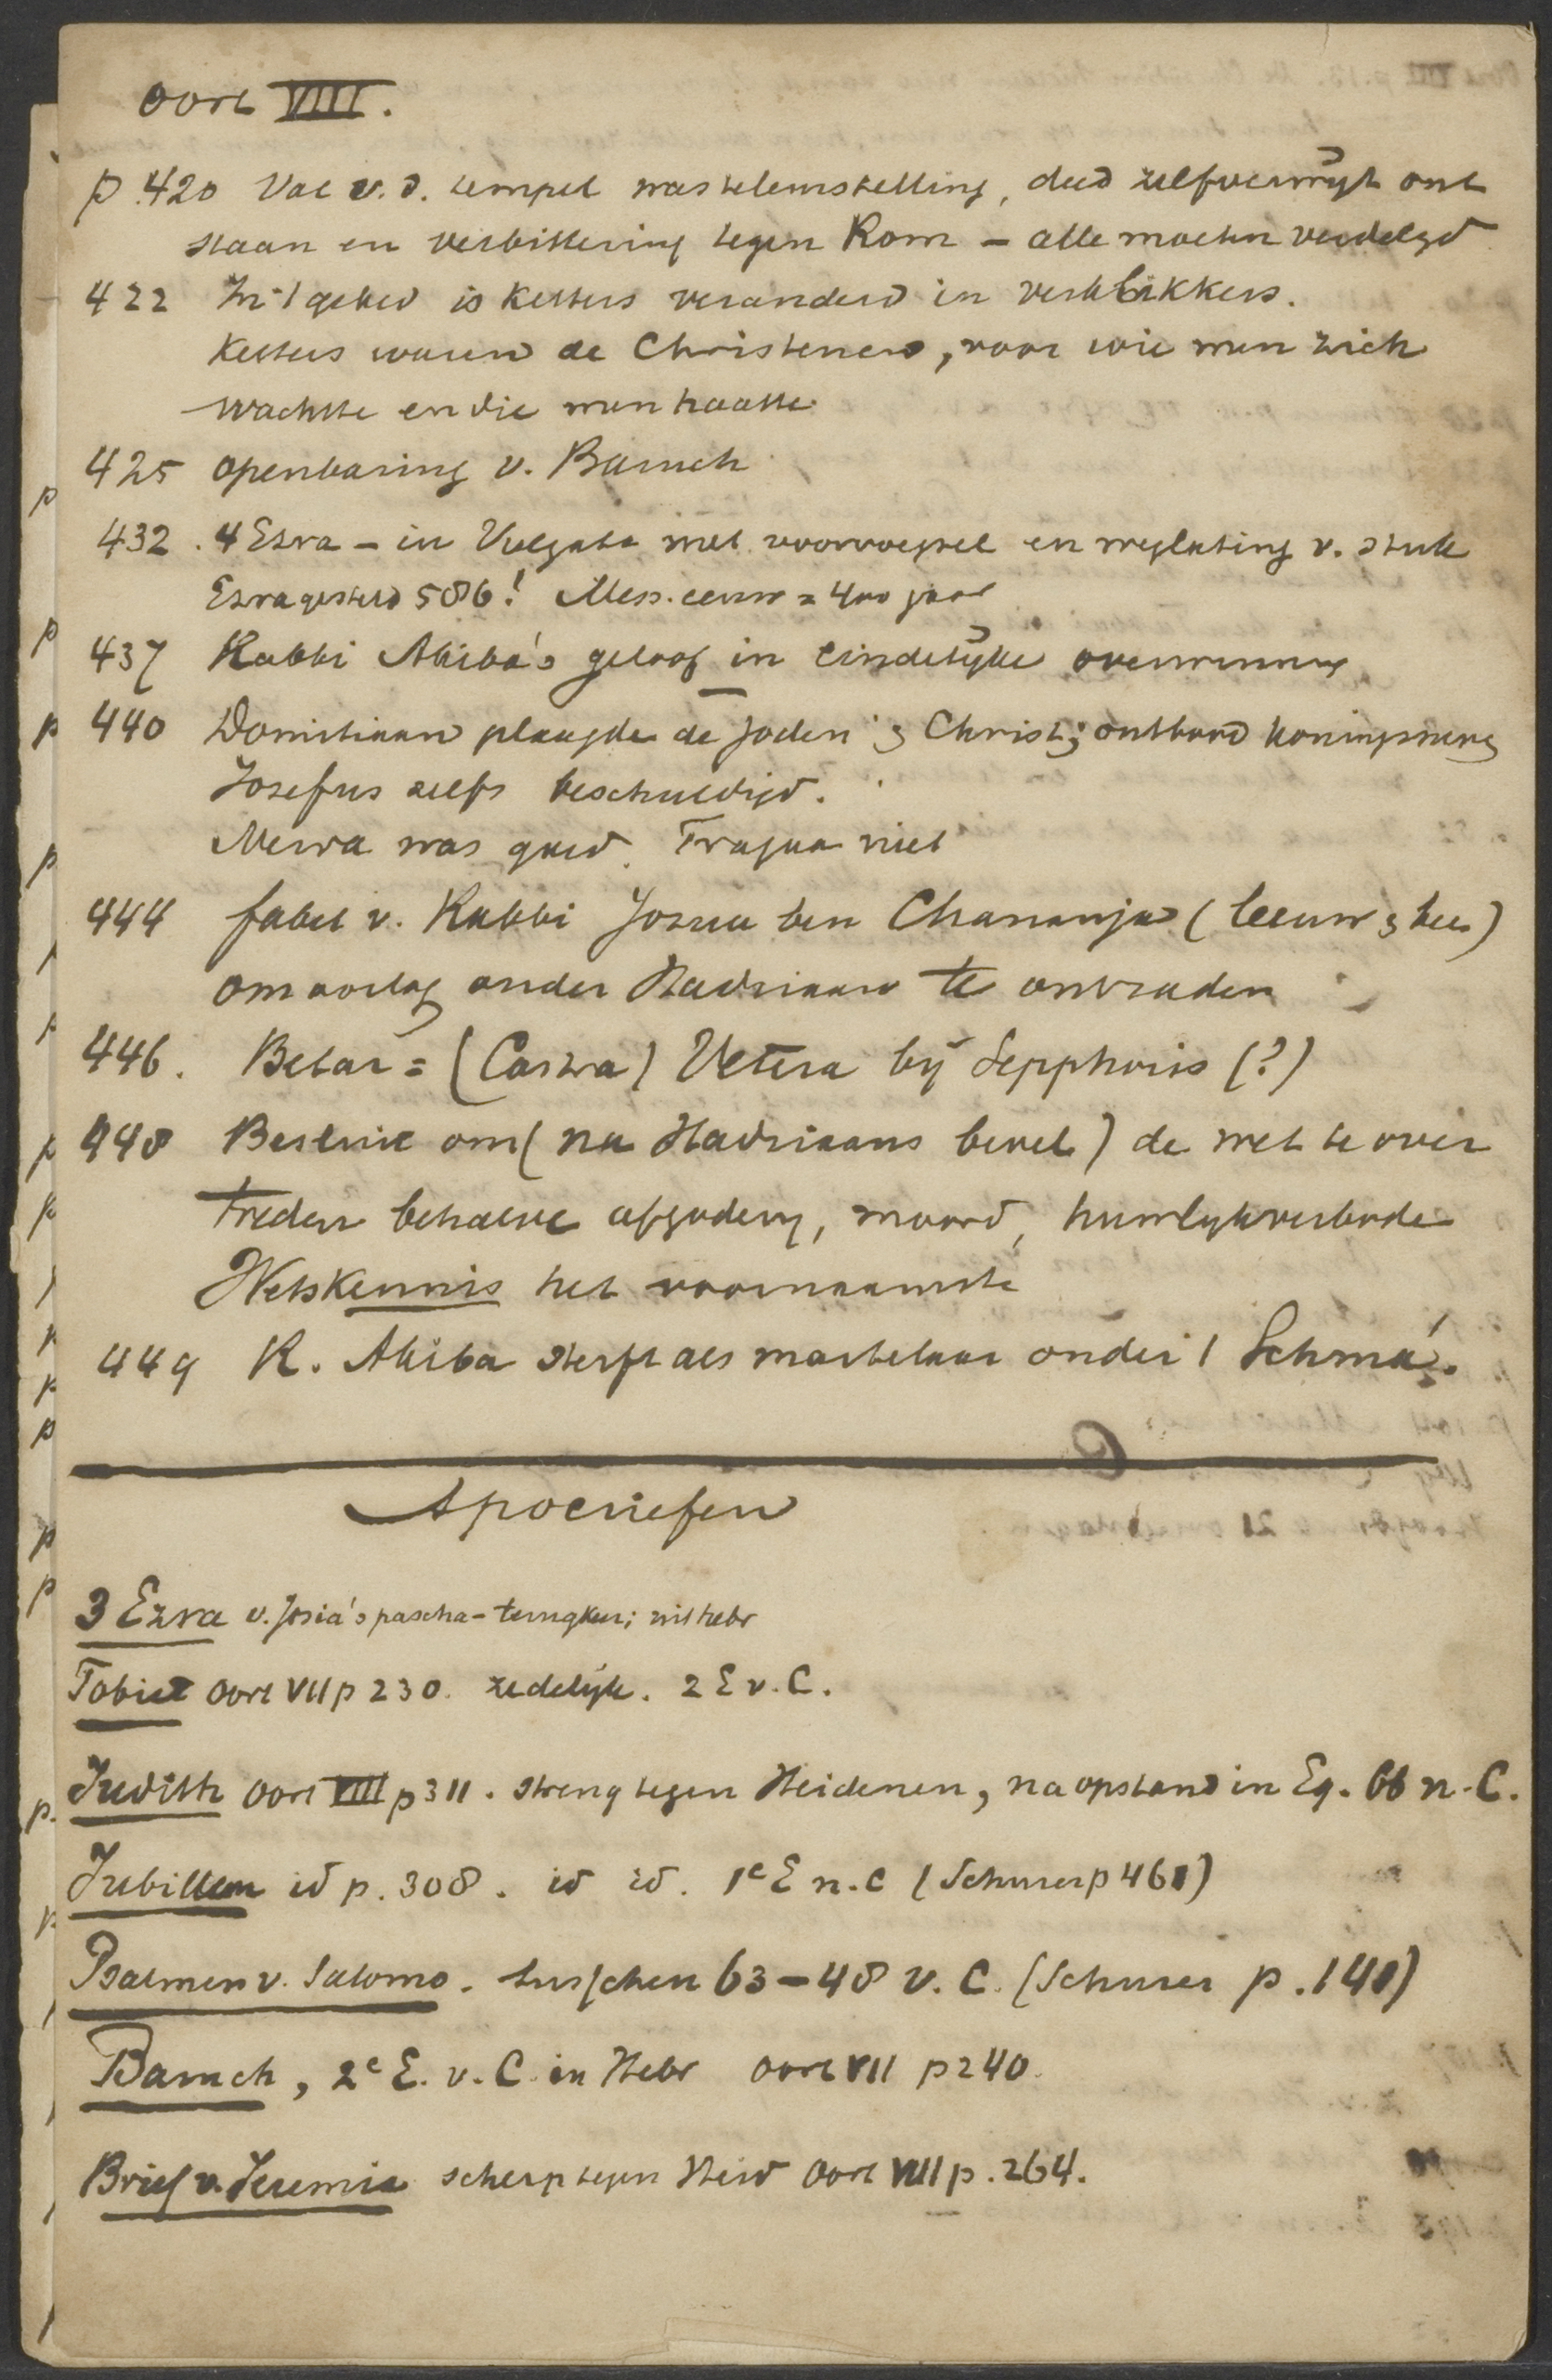 Oort VIII.
p. 420 Val v. d. tempel was teleurstelling, deed zelfverwijt ont
staan en verbittering tegen Rom – alle moeten verdelgd
422 In 't gebed is Ketters veranderd in verklikkers.
Ketters waren de Christenen, voor wie men zich
wachtte en die men haatte.
425 Openbaring v. Baruch
432. 4 Ezra – in Vulgata met voorvoegsel en weglating v. stuk
Ezra gesteld 586! Mess. eeuw = 400 jaar
437 Rabbi Akiba's geloof in eindelijke overwinning
440 Domitiaan plaagde de Joden & Christ; ontbood Koningszoons
Josefus zelfs beschuldigd.
Nerva was goed. Trajaan niet
444 fabel v. Rabbi Jozua ben Chananja (leeuw &
om oorlog onder Hadriaan te ontraden
446. Betar = (Castra) Vetera bij Sepphoris (?)
448 Besluit om (na Hadriaans bevel) de wet te over
treden behalve afgodery, moord, huwlykverbode
Wetskennis het voornaamste
449 R. Akiba sterft als martelaar onder 't Schmá.
Apocriefen
3 Ezra v. Josia's pascha – terugkeer; uit hebr
Tobiet Oort VII p 230. zedelijk. 2 E v. C.
Judith Oort VIII p 311. streng tegen Heidenen, na opstand in Eg. 66 n. C.
Jubileen id p. 308. id id. 1e E n. C (Schurer p 461)
Psalmen v. Salomo. tusschen 63–48 v. C. (Schurer p. 141)
Baruch, 2e E. v. C. in Hebr Oort VII p 240.
Brief v. Jeremia scherp tegen Heid Oort VIII p. 264.